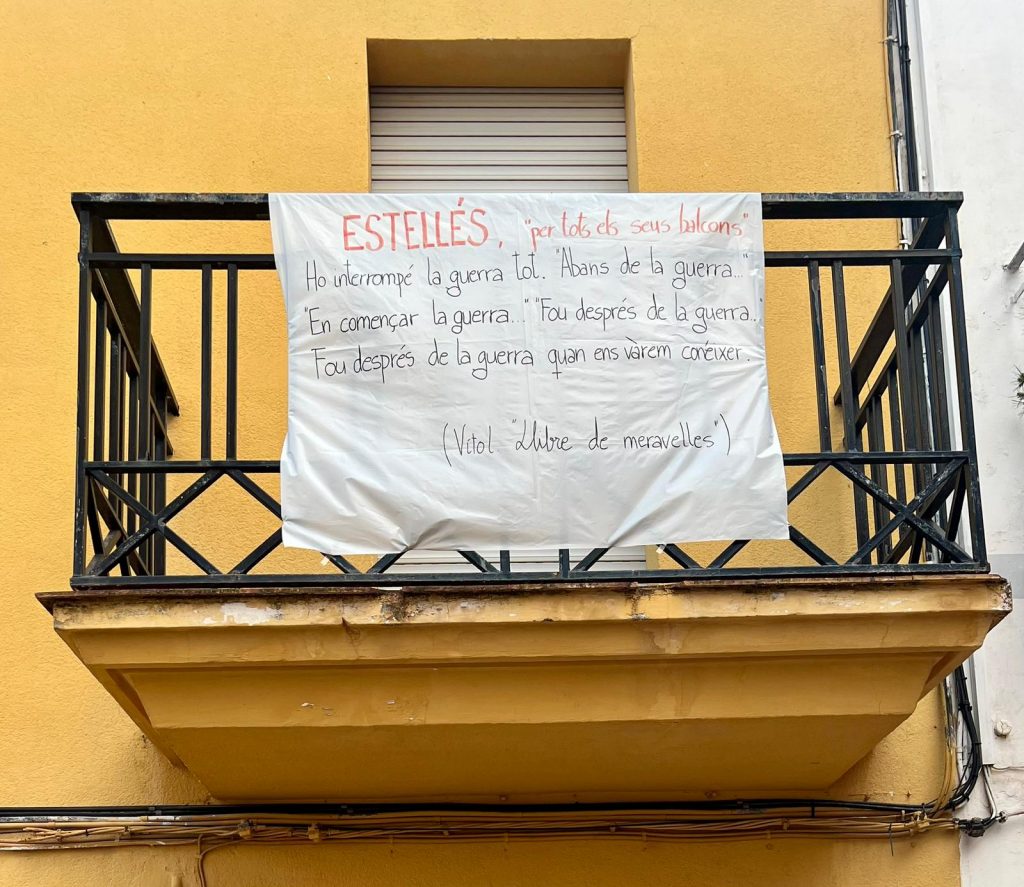 ESTELLÉS, "per tots els seus balcons"
Ho interrompé la guerra tot. "Abans de la guerra..."
"En començar la guerra..." "Fou després de la guerra..."
Fou després de la guerra quan ens vàrem conéixer.
(Vitol "Llibre de meravelles")